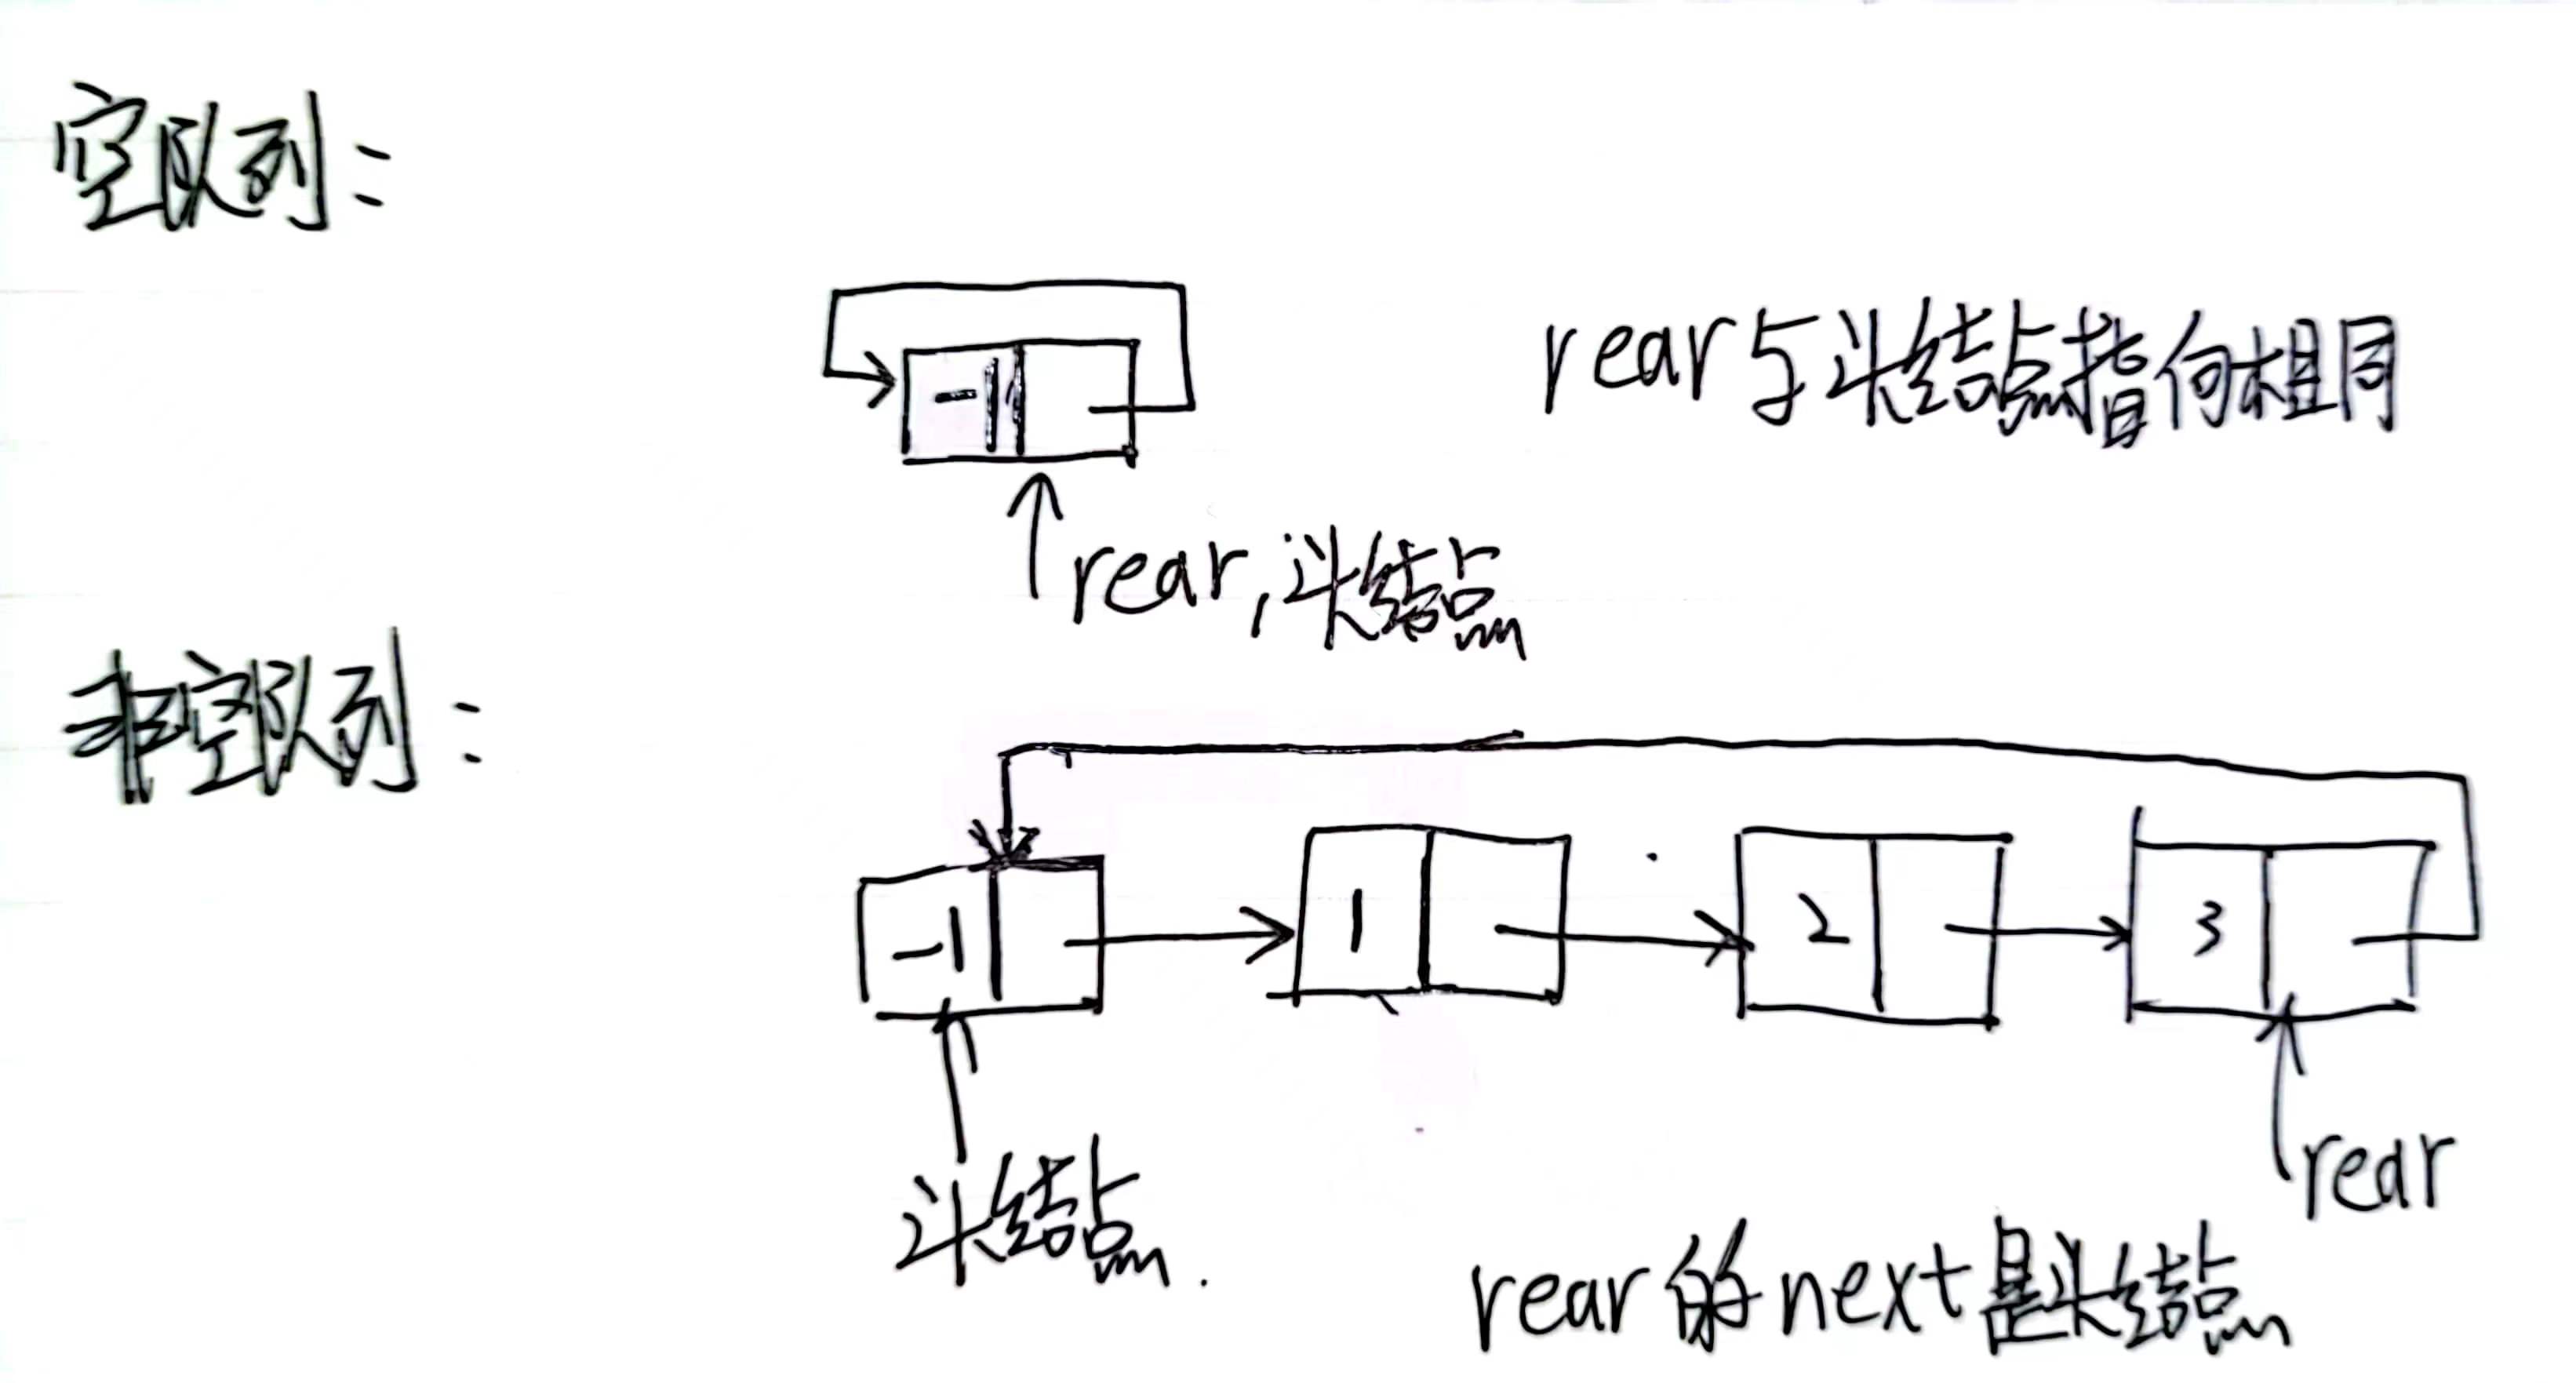 空队列：
-1
rear与头结点指向相同
rear,头结点
非空队列：
-1 1 2 3
头结点.
rear
rear的next是头结点